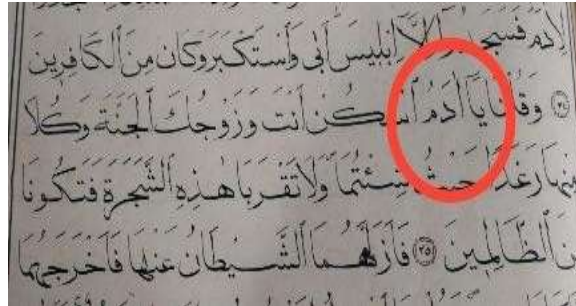 لِاٰدَمَ فَسَجَدُوا اِلَّا اِبْلِيسَ اَبٰى وَاسْتَكْبَرَ وَكَانَ مِنَ الْكَافِرِينَ
﴿٣٤﴾ وَقُلْنَا يَا اٰدَمُ اسْكُنْ اَنْتَ وَزَوْجُكَ الْجَنَّةَ وَكُلَا
مِنْهَا رَغَدًا حَيْثُ شِئْتُمَا وَلَا تَقْرَبَا هٰذِهِ الشَّجَرَةَ فَتَكُونَا
مِنَ الظَّالِمِينَ ﴿٣٥﴾ فَاَزَلَّهُمَا الشَّيْطَانُ عَنْهَا فَاَخْرَجَهُمَا